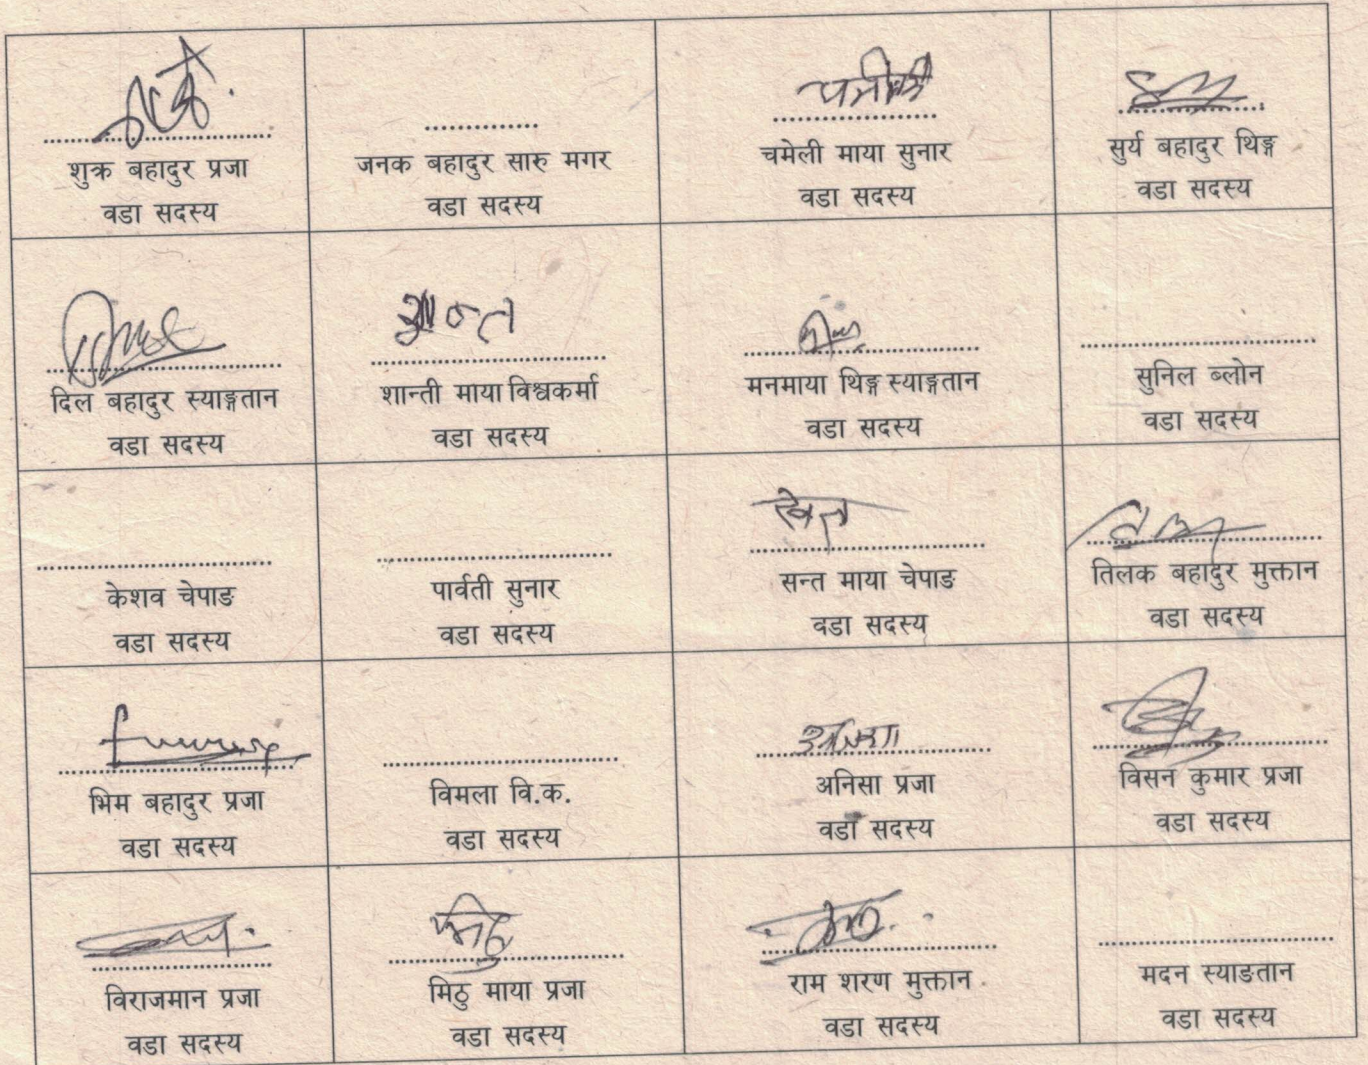 शुक्र बहादुर प्रजा
वडा सदस्य
जनक बहादुर सारु मगर
वडा सदस्य
चमेली माया सुनार
वडा सदस्य
सुर्य बहादुर थिङ्ग
वडा सदस्य
दिल बहादुर स्याङ्गतान
वडा सदस्य
शान्त
शान्ती माया विश्वकर्मा
वडा सदस्य
मनमाया थिङ्ग स्याङ्गतान
वडा सदस्य
सुनिल ब्लोन
वडा सदस्य
केशव चेपाङ
वडा सदस्य
पार्वती सुनार
वडा सदस्य
सन्त माया चेपाङ
वडा सदस्य
तिलक बहादुर मुक्तान
वडा सदस्य
भिम बहादुर प्रजा
वडा सदस्य
विमला वि.क.
वडा सदस्य
अनिसा प्रजा
वडा सदस्य
विसन कुमार प्रजा
वडा सदस्य
विराजमान प्रजा
वडा सदस्य
मिठु
मिठु माया प्रजा
वडा सदस्य
राम शरण मुक्तान
वडा सदस्य
मदन स्याङतान
वडा सदस्य